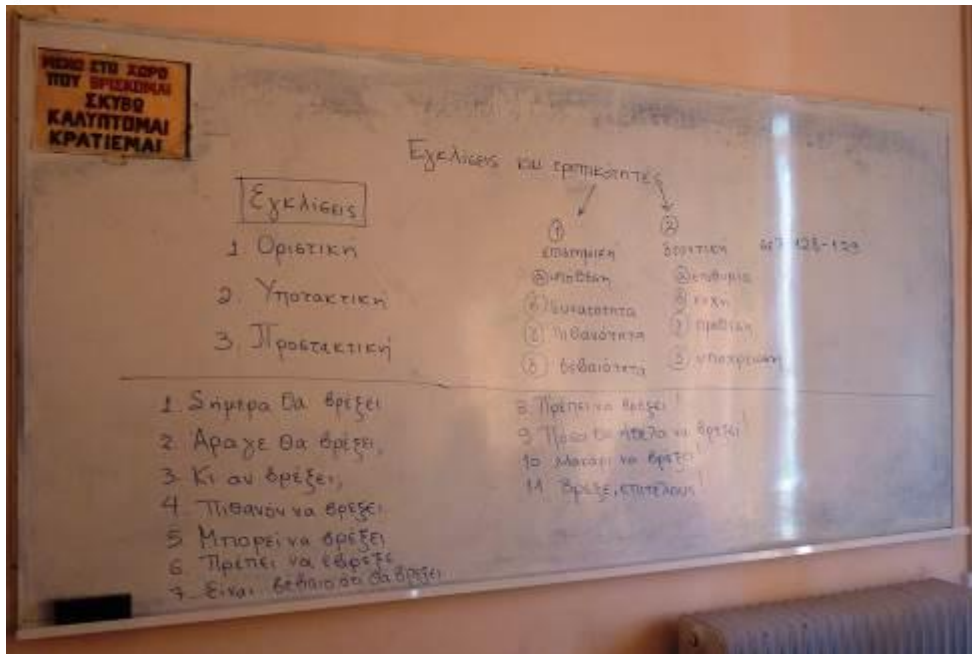 ΜΕΝΩ ΣΤΟ ΧΩΡΟ
ΠΟΥ ΒΡΙΣΚΟΜΑΙ
ΣΚΥΒΩ
ΚΑΛΥΠΤΟΜΑΙ
ΚΡΑΤΙΕΜΑΙ
Εγκλίσεις και τροπικότητες
Εγκλίσεις
1. Οριστική
2. Υποτακτική
3. Προστακτική
①
επιστημική
α υπόθεση
β δυνατότητα
γ πιθανότητα
δ βεβαιότητα
②
δεοντική σελ 128-129
α επιθυμία
β ευχή
γ πρόθεση
δ υποχρέωση
1. Σήμερα θα βρέξει
2. Άραγε θα βρέξει;
3. Κι αν βρέξει;
4. Πιθανόν να βρέξει
5. Μπορεί να βρέξει
6. Πρέπει να έβρεξε
7. Είναι βέβαιο ότι θα βρέξει
8. Πρέπει να βρέξει!
9. Πόσο θα ήθελα να βρέξει!
10. Μακάρι να βρέξει!
11. Βρέξε, επιτέλους!